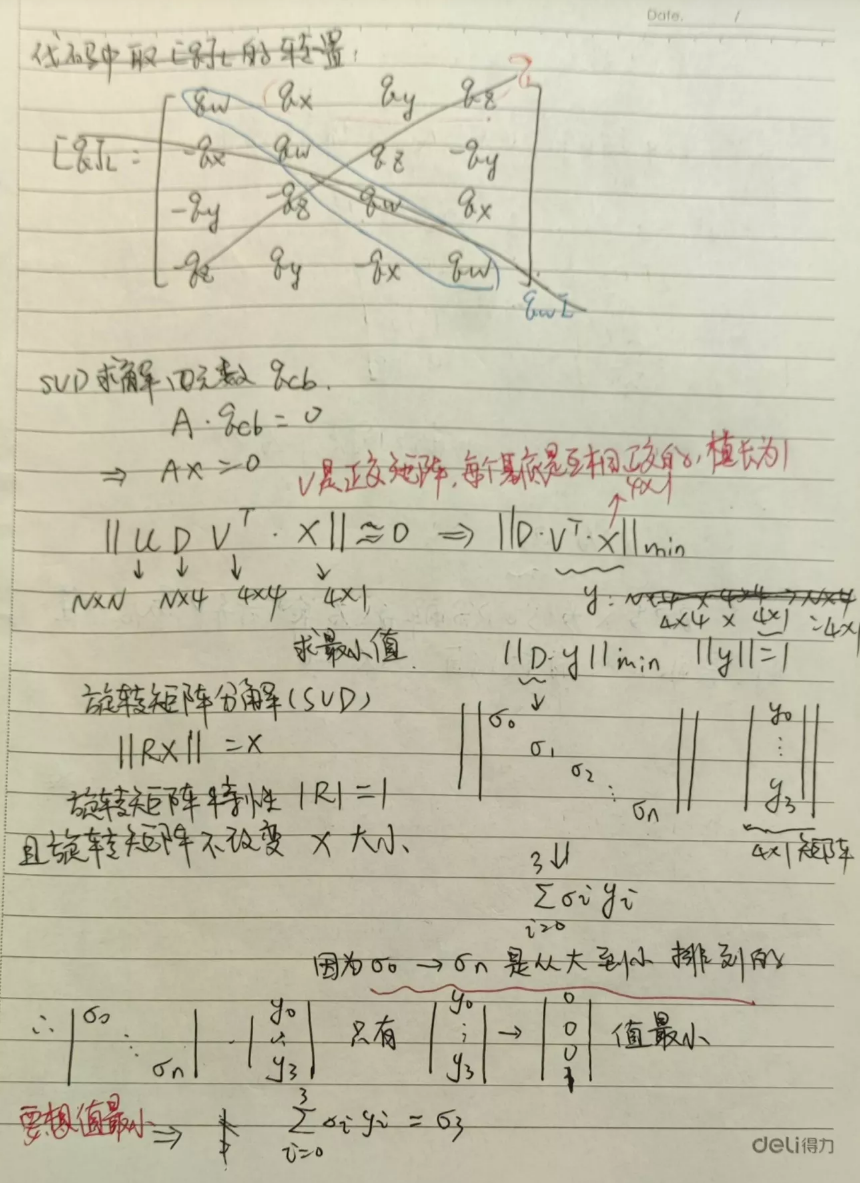 Date. /
代码中取[q]L的转置:
[q]L = [ qw qx qy qz ]
-qx qw qz -qy
-qy -qz qw qx
-qz qy -qx qw
qwI
SVD求解四元数 qcb.
A·qcb = 0
⇒ Ax = 0
V是正交矩阵,每个基底是互相正交的,模长为1
4x1
||U D V^T · X|| ≈ 0 ⇒ ||D·V^T·x||min
NxN Nx4 4x4 4x1
y: 4x4 x 4x1 = 4x1
求最小值 ||D·y||min ||y||=1
旋转矩阵分解(SVD)
||RX|| = X
旋转矩阵特性 |R| = 1
且旋转矩阵不改变 X 大小
|| σ0 σ1 σ2 ⋱ σn || | y0 ⋮ y3 ||
4x1矩阵
⇓
3∑i=0 σi yi
因为σ0 → σn 是从大到小排列的
∴ | σ0 ⋱ σn | · | y0 ⋮ y3 | 只有 | y0 ⋮ y3 | → | 0 0 0 1 | 值最小
要想值最小 ⇒ 3∑i=0 σi yi = σ3
deli得力